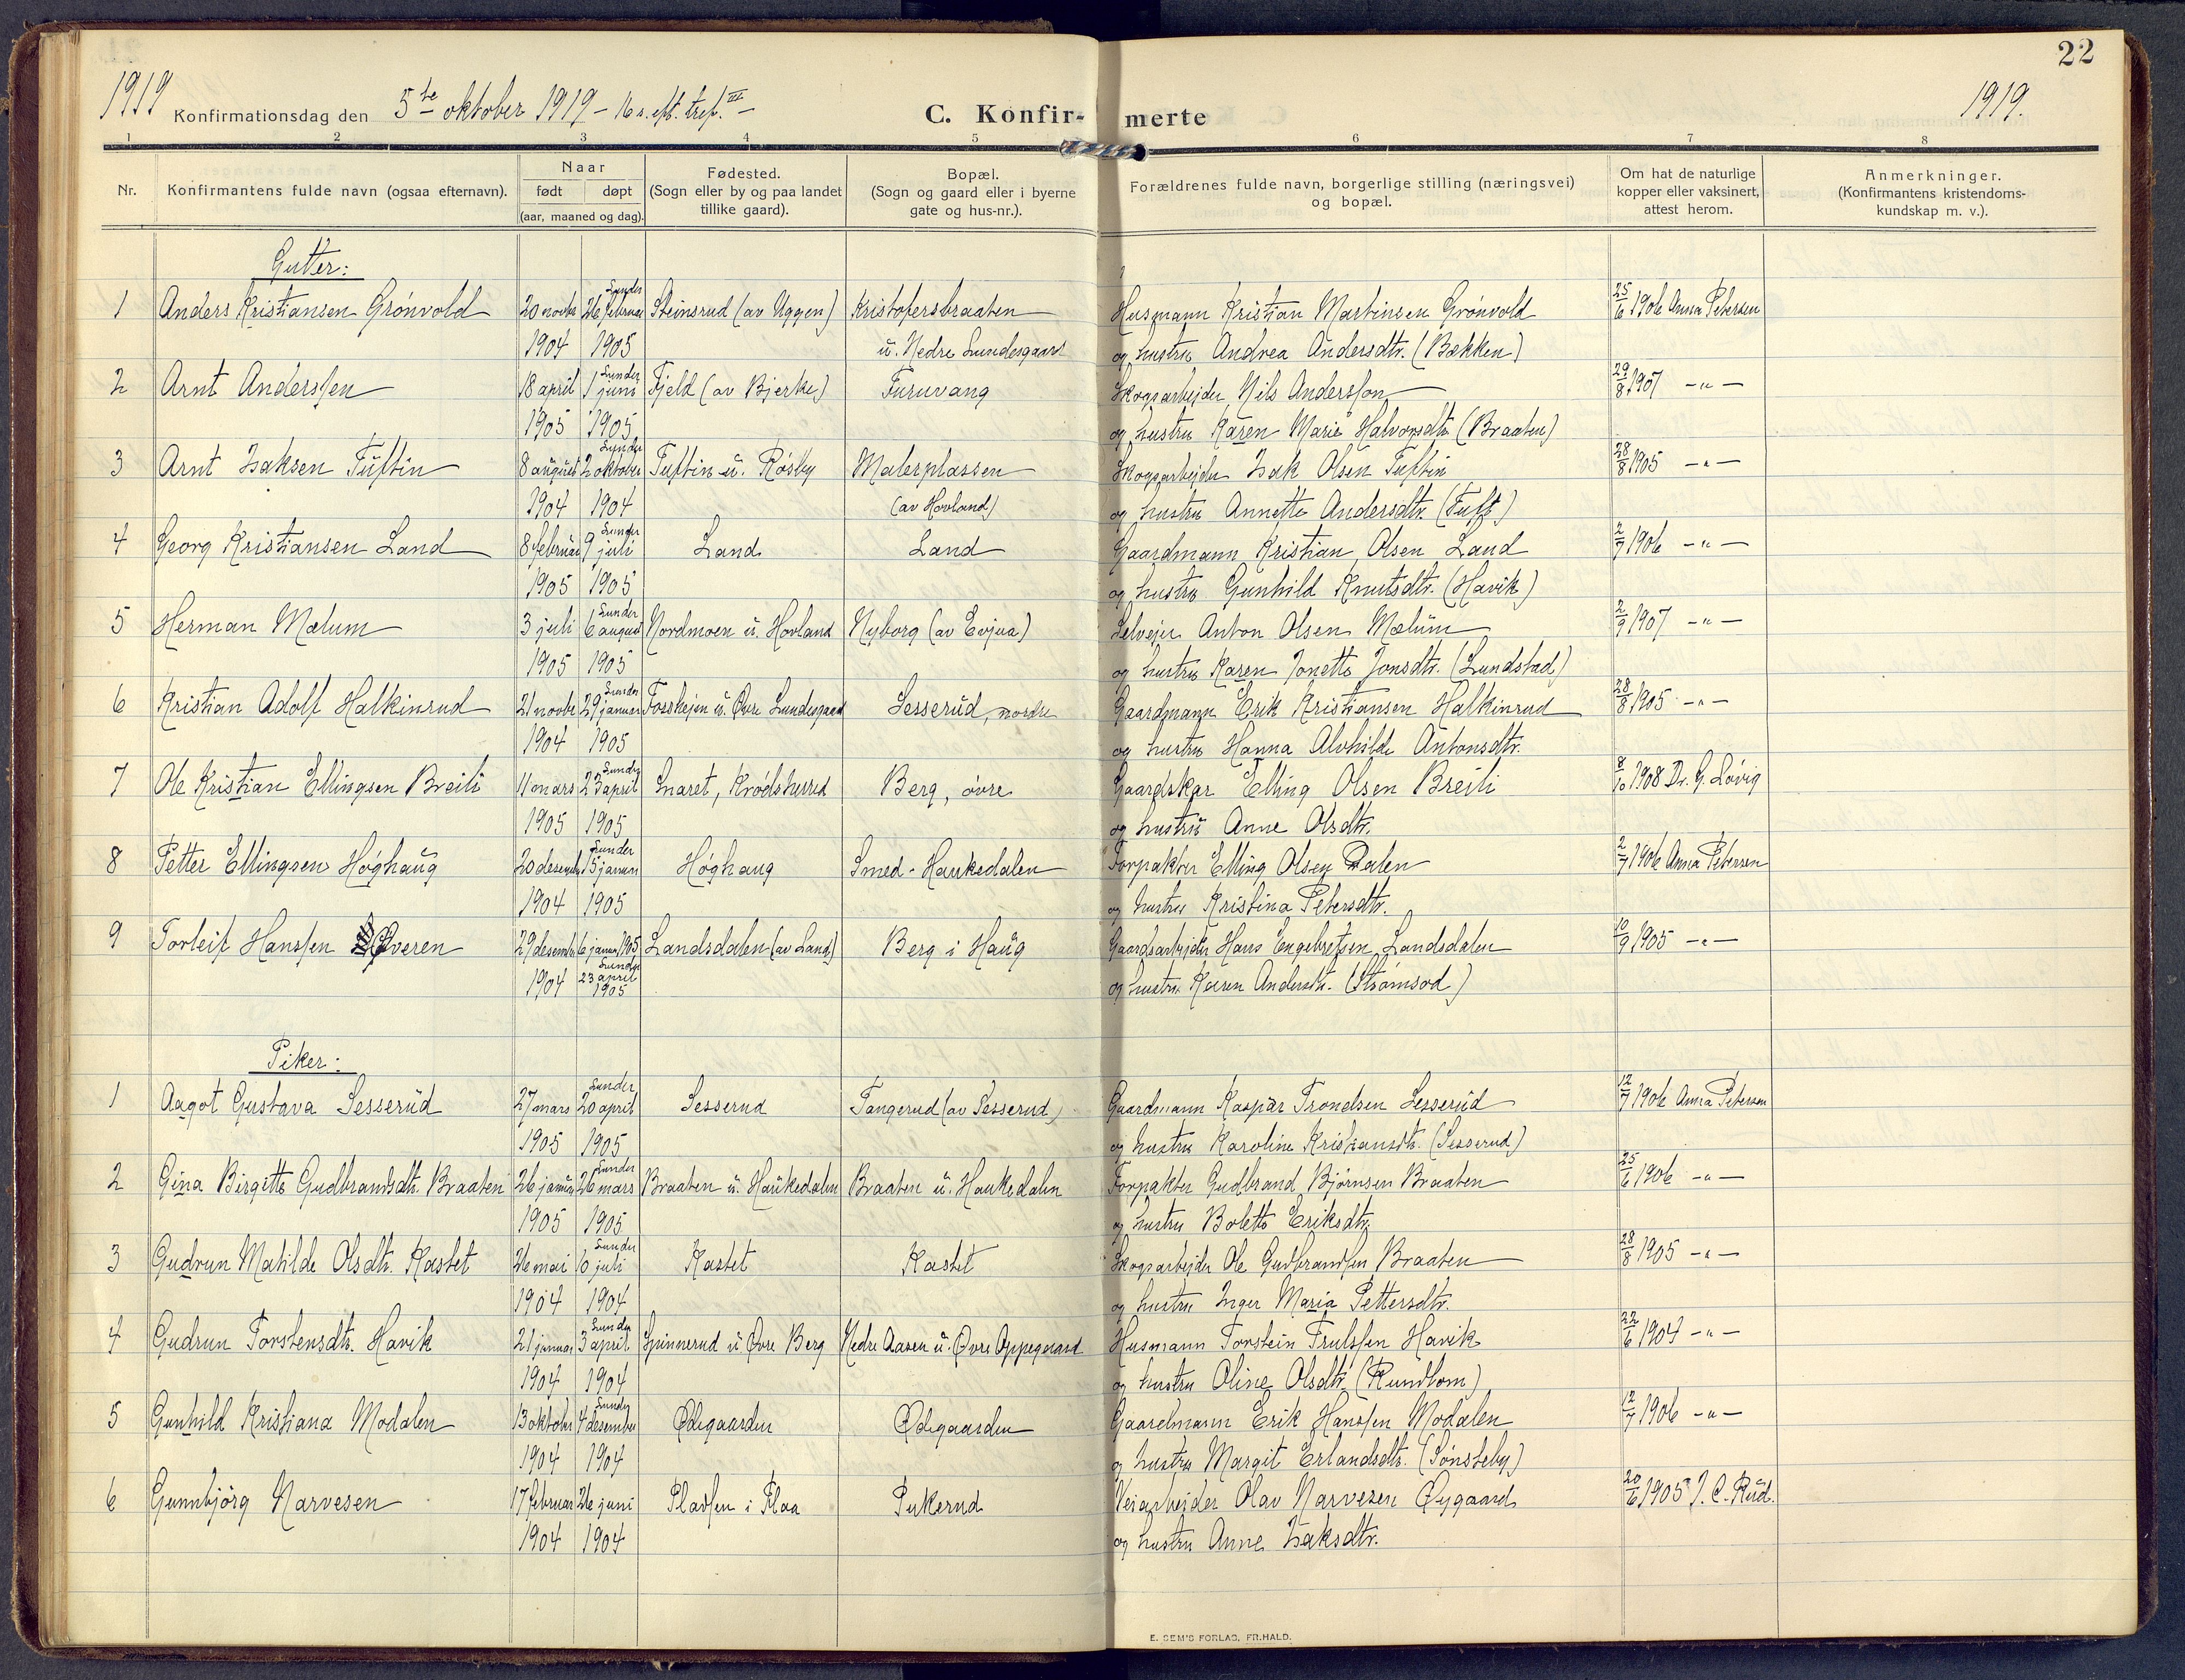 22
1919 Konfirmationsdag den 5te oktober 1919 - 16 s. eft. tref. III - C. Konfir-merte 1919.
1 2 3 4 5 6 7 8
Nr. Konfirmantens fulde navn (ogsaa efternavn). Naar født døpt (aar, maaned og dag). Fødested. (Sogn eller by og paa landet tillike gaard). Bopæl. (Sogn og gaard eller i byerne gate og hus-nr.). Forældrenes fulde navn, borgerlige stilling (næringsvei) og bopæl. Om hat de naturlige kopper eller vaksinert, attest herom. Anmerkninger. (Konfirmantens kristendoms-kundskap m. v.).
Gutter:
Lunder
1 Anders Kristiansen Grønvold 20 novbr 26 februar Steinsrud (av Uggen) Kristofersbraaten Husmann Kristian Martinsen Grønvold 25/6 1906 Anna Petersen
1904 1905 u. Nedre Lundesgaard og hustru Andrea Andersdtr. (Bækken)
Lunder
2 Arnt Anderssen 18 april 1 juni Fjeld (av Bjerke) Furuvang Skogsarbejder Nils Andersson 29/8 1907 -"-
1905 1905 og hustru Karen Marie Halvorsdtr (Braaten)
Lunder
3 Arnt Isaksen Tuftin 8 august 2 oktober Tuftin u. Røsby Malerplassen Skogsarbejder Isak Olsen Tuftin 28/8 1905 -"-
1904 1904 (av Hovland) og hustru Annette Andersdtr. (Tuft)
Lunder
4 Georg Kristiansen Land 8 februar 9 juli Land Land Gaardmann Kristian Olsen Land 2/7 1906 -"-
1905 1905 og hustru Gunhild Knutsdtr. (Havik)
Lunder
5 Herman Mælum 3 juli 6 august Nordmoen u. Hovland Nyborg (av Evjua) Selvejer Anton Olsen Mælum 2/9 1907 -"-
1905 1905 og hustru Karen Jonette Jonsdtr. (Lundstad)
Lunder
6 Kristian Adolf Halkinrud 21 novbr 29 januar Fosshejm u. Øvre Lundesgaard Sesserud, nordre Gaardmann Erik Kristiansen Halkinrud 28/8 1905 -"-
1904 1905 og hustru Hanna Alvhilde Antonsdtr.
Lunder
7 Ole Kristian Ellingsen Breili 11 mars 23 april Snaret, Krødsherred Berg, øvre Gaardskar Elling Olsen Breili 8/10 1908 Dr. G. Løvig
1905 1905 og hustru Anne Olsdtr.
Lunder
8 Petter Ellingsen Høghaug 20 desember 15 januar Høghaug Smed-Haukedalen Forpakter Elling Olsen Dalen 2/7 1906 Anna Petersen
1904 1905 og hustru Kristina Petersdtr.
9 Torleif Hanssen Sveren 29 desembr 6 januar 1905 Landsdalen (av Land) Berg i Haug Gaardsarbejder Hans Engebretsen Landsdalen 10/9 1905 -"-
1904 Lunder 23 april 1905 og hustru Karen Andersdtr. (Strømsod)
Piker:
Lunder
1 Aagot Gustava Sesserud 27 mars 20 april Sesserud Tangerud (av Sesserud) Gaardmann Kaspar Trondsen Sesserud 12/7 1906 Anna Petersen
1905 1905 og hustru Karoline Kristiansdtr. (Sesserud)
Lunder
2 Gina Birgitte Gudbrandsdtr. Braaten 26 januar 26 mars Braaten u. Haukedalen Braaten u. Haukedalen Forpakter Gudbrand Bjørnsen Braaten 25/6 1906 -"-
1905 1905 og hustru Bolette Eriksdtr.
Lunder
3 Gudrun Matilde Olsdtr. Kastet 26 mai 10 juli Kastet Kastet Skogsarbejder Ole Gudbrandsen Braaten 28/8 1905 -"-
1904 1904 og hustru Inger Maria Pettersdtr.
Lunder
4 Gudrun Torstensdtr. Havik 21 januar 3 april Spinnerud u. Øvre Berg Nedre Aasen u. Øvre Oppegaard Husmann Torstein Trulssen Havik 22/6 1904 -"-
1904 1904 og hustru Oline Olsdtr. (Rundtom)
Lunder
5 Gunhild Kristiana Modalen 13 oktober 4 desember Ødegaarden Ødegaarden Gaardmann Erik Hanssen Modalen 12/7 1906 -"-
1904 1904 og hustru Margit Erlandsdtr. (Sønsteby)
6 Gunnbjørg Narvesen 17 februar 26 juni Plassen i Flaa Pukerud Veiarbejder Olav Narvesen Øygaard 20/6 1905 J. C. Rud.
1904 1904 og hustru Anne Isaksdtr.
E. SEM'S FORLAG, FR.HALD.